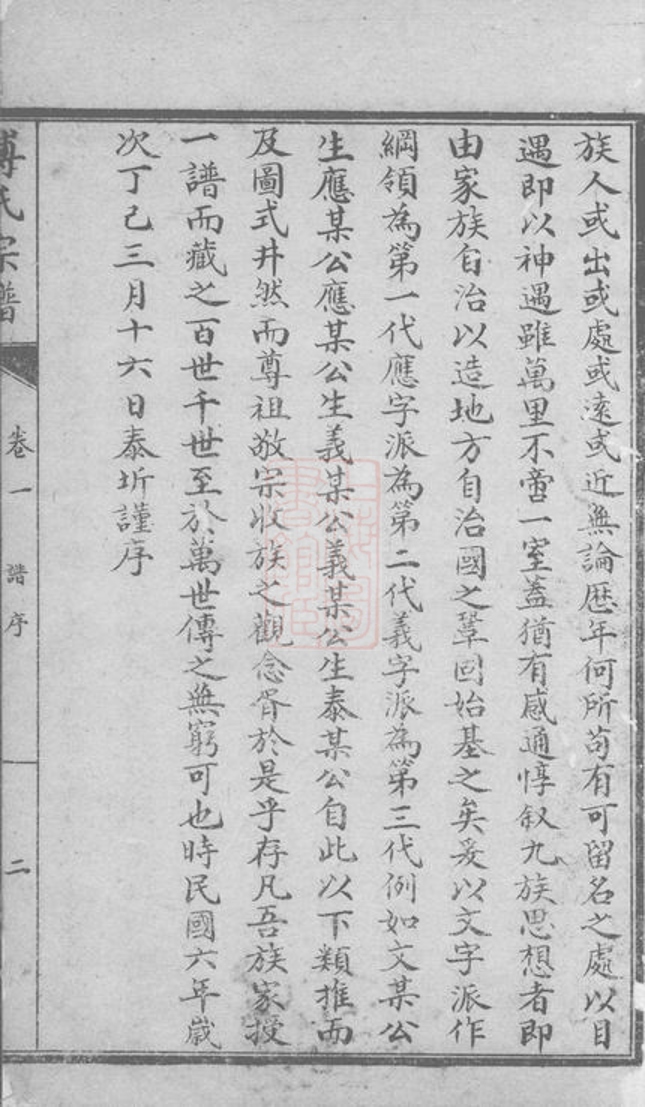 族人或出或處或遠或近無論歷年何所苟有可留名之處以目
遇即以神遇雖萬里不啻一室蓋猶有感通惇叙九族思想者即
由家族自治以造地方自治國之鞏固始基之矣爰以文字派作
綱領為第一代應字派為第二代義字派為第三代例如文某公
生應某公應某公生義某公義某公生泰某公自此以下類推而
及圖式井然而尊祖敬宗收族之觀念胥於是乎存凡吾族家授
一譜而藏之百世千世至於萬世傳之無窮可也時民國六年歲
次丁己三月十六日泰圻謹序
傅氏宗譜
卷一
譜序
二